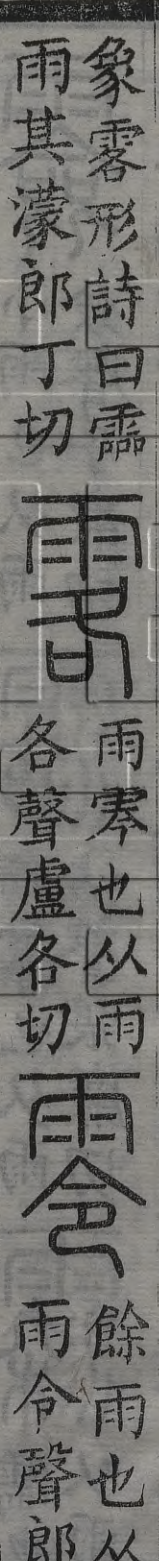 象䨖形詩曰霝
雨其濛郎丁切
䨖
雨零也从雨
各聲盧各切
零
餘雨也从
雨令聲郎